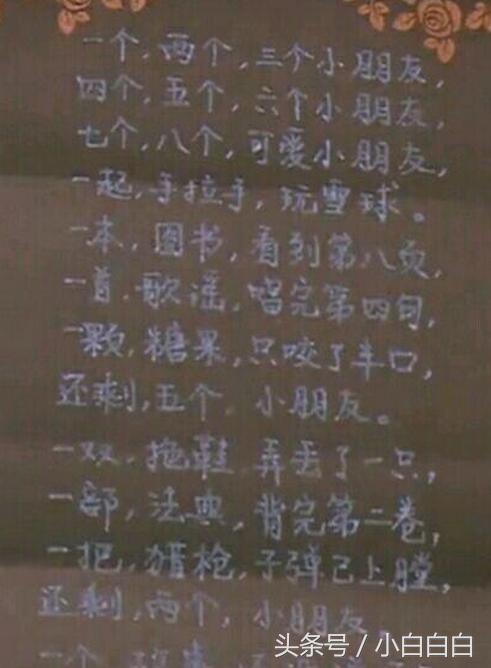 一个,两个,三个小朋友,
四个,五个,六个小朋友,
七个,八个,可爱小朋友,
一起,手拉手,玩雪球。
一本,图书,看到第八页,
一首,歌谣,唱完第四句,
一颗,糖果,只咬了半口,
还剩,五个,小朋友。
一双,拖鞋,弄丢了一只,
一部,法典,背完第二卷,
一把,猎枪,子弹已上膛,
还剩,两个,小朋友。
一个
头条号 / 小白白白